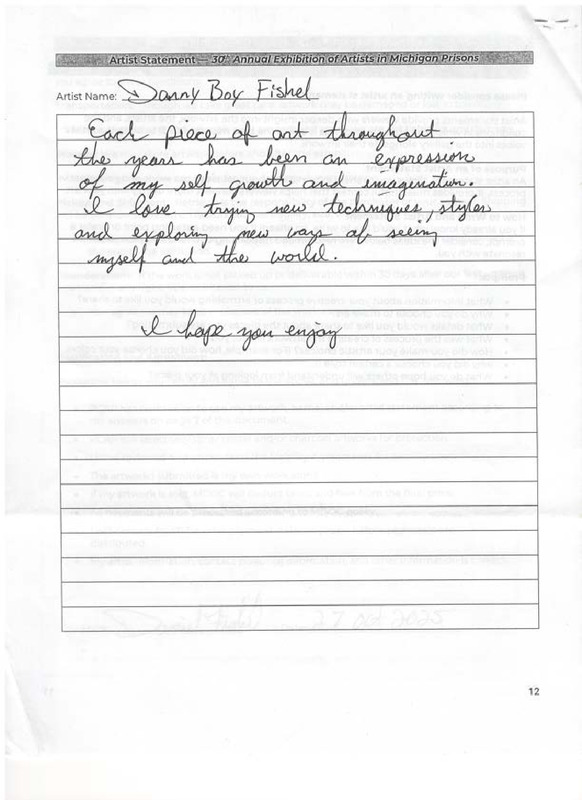 Artist Statement — 30th Annual Exhibition of Artists in Michigan Prisons
Artist Name: Danny Boy Fishel
Each piece of art throughout
the years has been an expression
of my self growth and imagination.
I love trying new techniques, styles
and exploring new ways of seeing
myself and the world.
I hope you enjoy
12